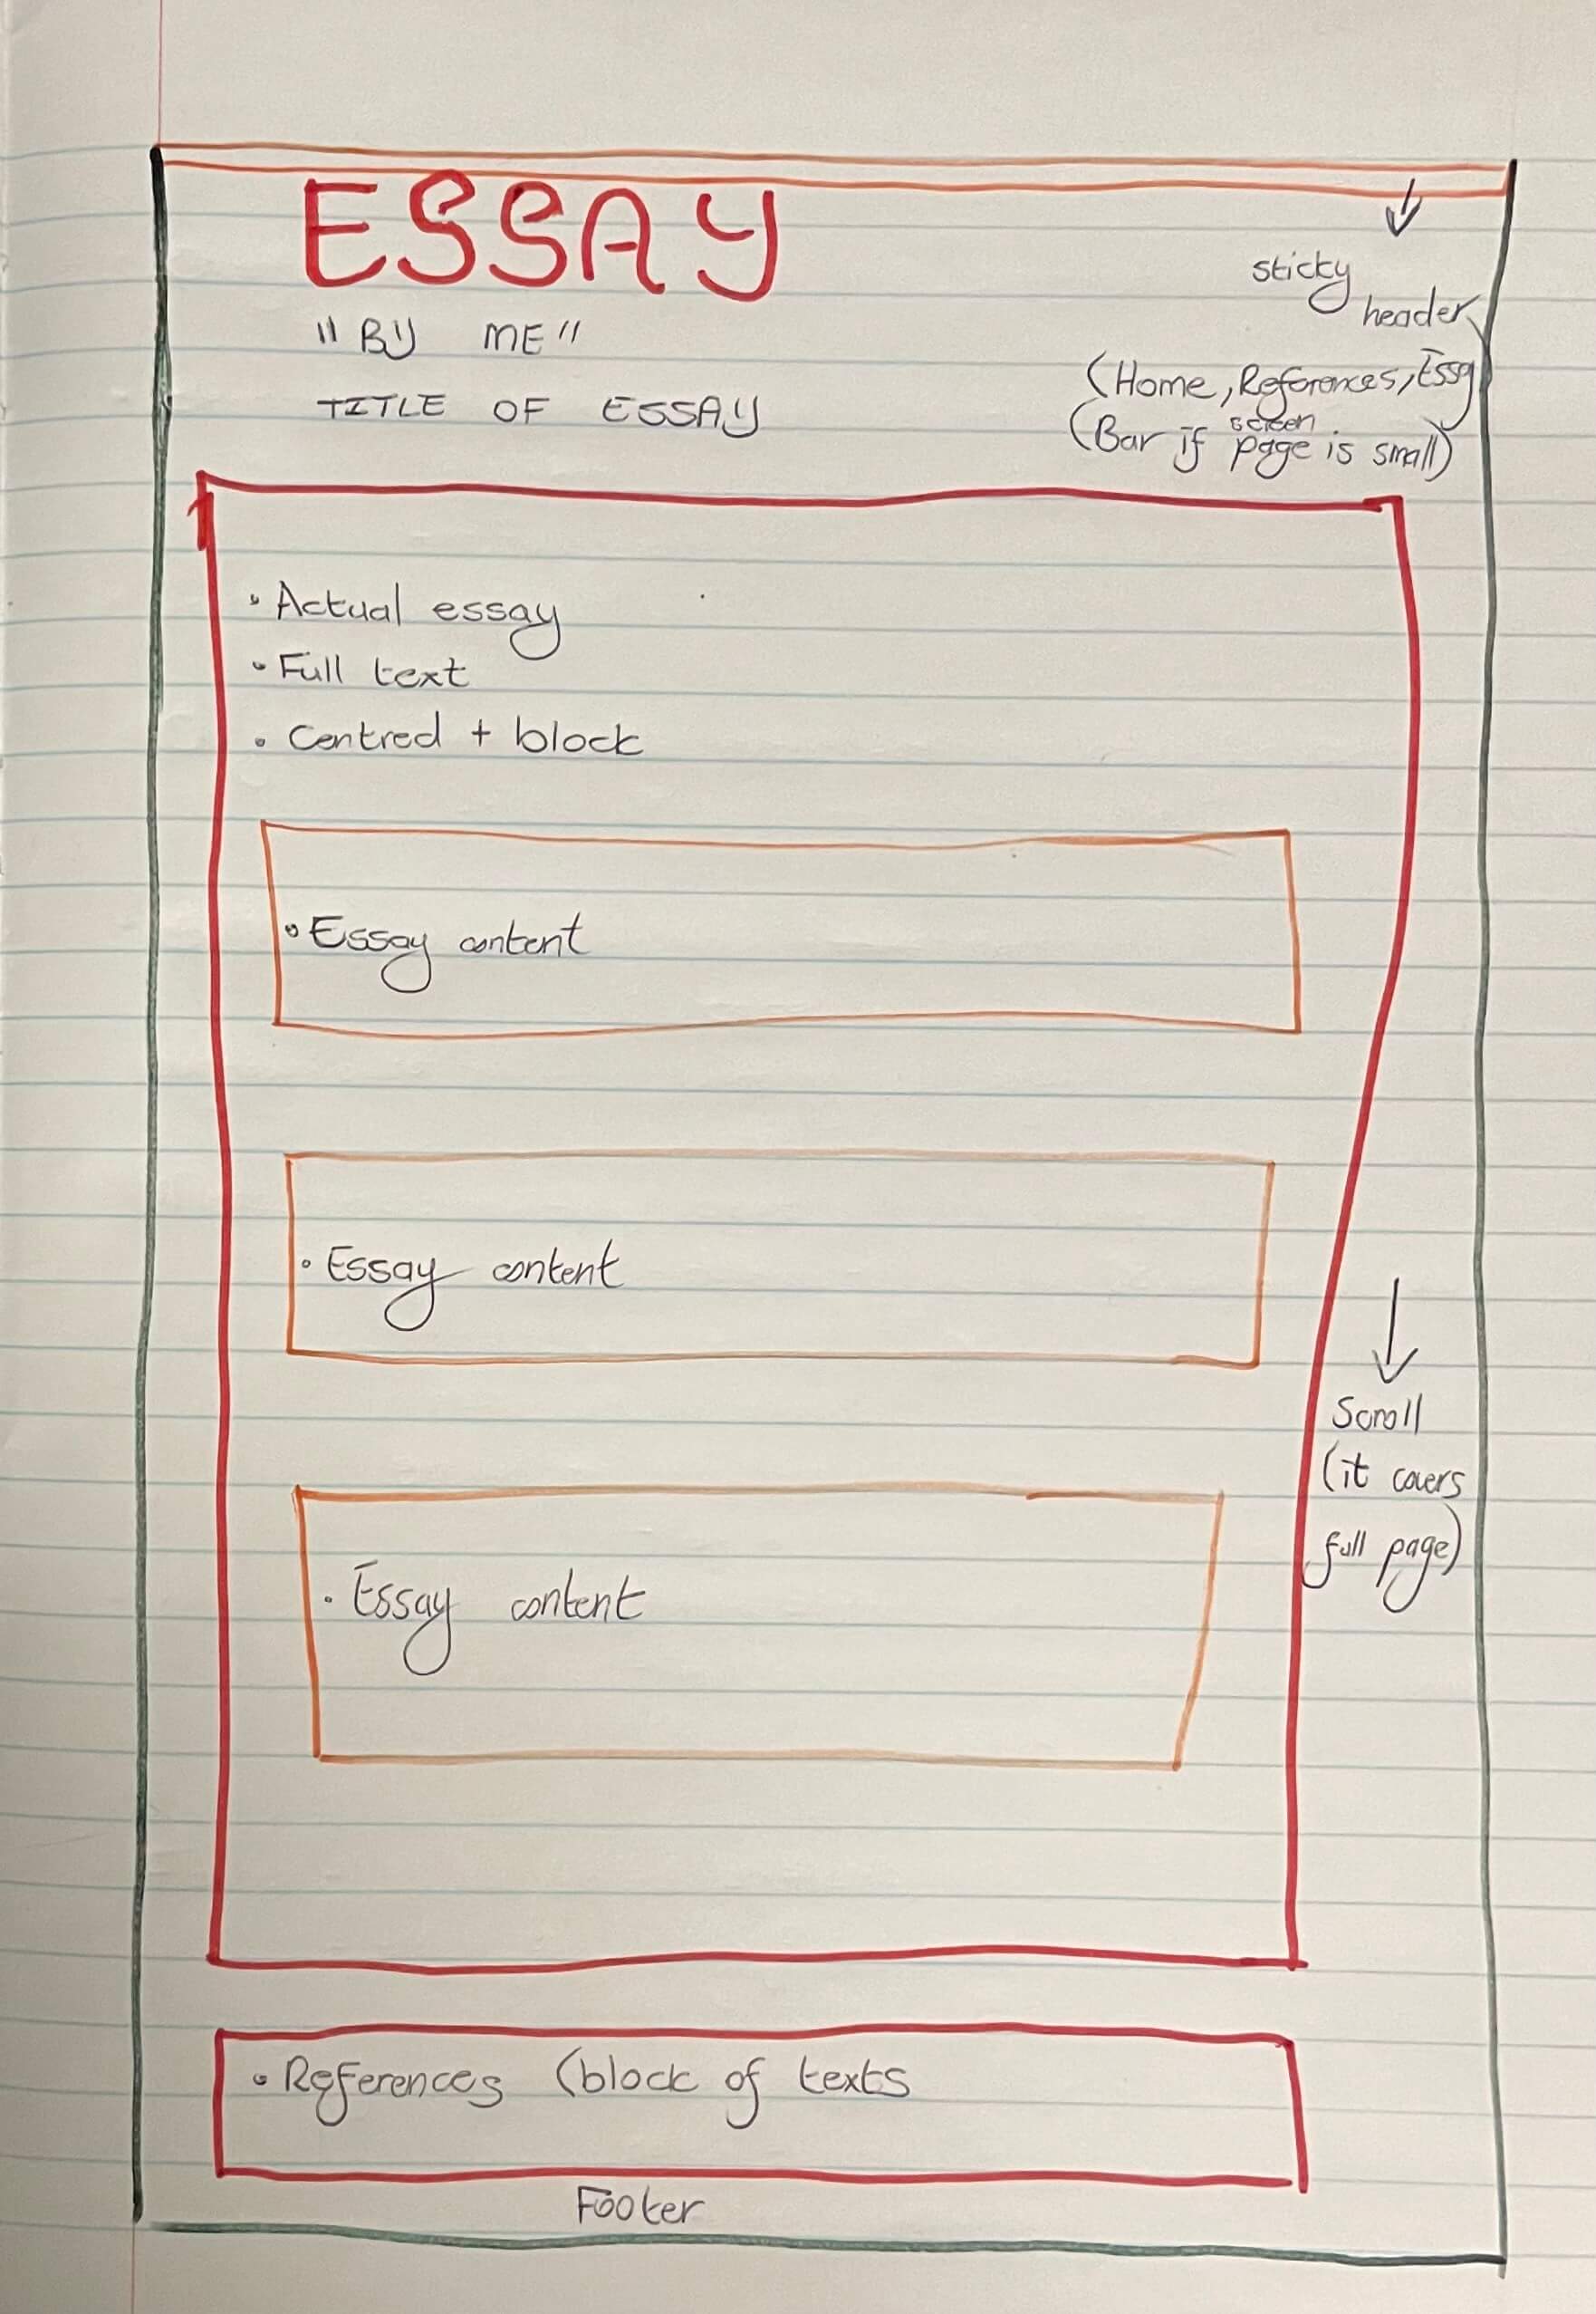 ESSAY
"BY ME"
TITLE OF ESSAY
sticky
header
(Home, References, Essay
(Bar if screen page is small)
• Actual essay
• Full text
• Centred + block
• Essay content
• Essay content
Scroll
(it covers
full page)
• Essay content
• References (block of texts
Footer